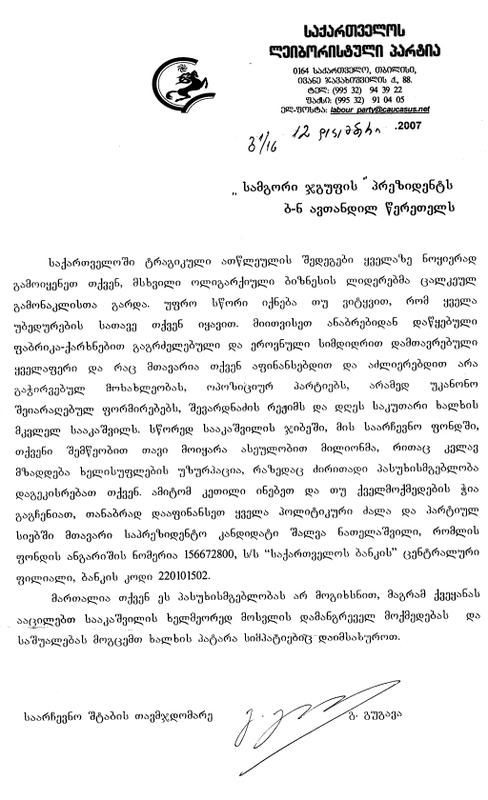 საქართველოს
ლეიბორისტული პარტია
0164 საქართველო, თბილისი,
ივანე ჯავახიშვილის ქ, 88.
ტელ: (995 32) 94 39 22
ფაქსი: (995 32) 91 04 05
ელ-ფოსტა: labour_party@caucasus.net
12 დეკემბერი .2007
„ სამგორი ჯგუფის " პრეზიდენტს
ბ-ნ ავთანდილ წერეთელს
საქართველოში ტრაგიკული ათწლეულის შედეგები ყველაზე ნოყიერად
გამოიყენეთ თქვენ, მსხვილი ოლიგარქიული ბიზნესის ლიდერებმა ცალკეულ
გამონაკლისთა გარდა. უფრო სწორი იქნება თუ ვიტყვით, რომ ყველა
უბედურების სათავე თქვენ იყავით. მიითვისეთ ანაბრებიდან დაწყებული
ფაბრიკა-ქარხნებით გაგრძელებული და ეროვნული სიმდიდრით დამთავრებული
ყველაფერი და რაც მთავარია თქვენ აფინანსებდით და აძლიერებდით არა
გაჭირვებულ მოსახლეობას, ოპოზიციურ პარტიებს, არამედ უკანონო
შეიარაღებულ ფორმირებებს, შევარდნაძის რეჟიმს და დღეს საკუთარი ხალხის
მკვლელ სააკაშვილს. სწორედ სააკაშვილის ჯიბეში, მის საარჩევნო ფონდში,
თქვენი შემწეობით თავი მოიყარა ასეულობით მილიონმა, რითაც კვლავ
მზადდება ხელისუფლების უზურპაცია, რაზედაც ძირითადი პასუხისმგებლობა
დაგეკისრებათ თქვენ. ამიტომ კეთილი ინებეთ და თუ ქველმოქმედების ჭია
გაგჩენიათ, თანაბრად დააფინანსეთ ყველა პოლიტიკური ძალა და პარტიულ
სიებში მთავარი საპრეზიდენტო კანდიდატი შალვა ნათელაშვილი, რომლის
ფონდის ანგარიშის ნომერია 156672800, ს/ს "საქართველოს ბანკის" ცენტრალური
ფილიალი, ბანკის კოდი 220101502.
მართალია თქვენ ეს პასუხისმგებლობას არ მოგიხსნით, მაგრამ ქვეყანას
ააცილებთ სააკაშვილის ხელმეორედ მოსვლის დამანგრეველ მოქმედებას და
საშუალებას მოგცემთ ხალხის პატარა სიმპატიებიც დაიმსახუროთ.
საარჩევნო შტაბის თავმჯდომარე გ. გუგავა